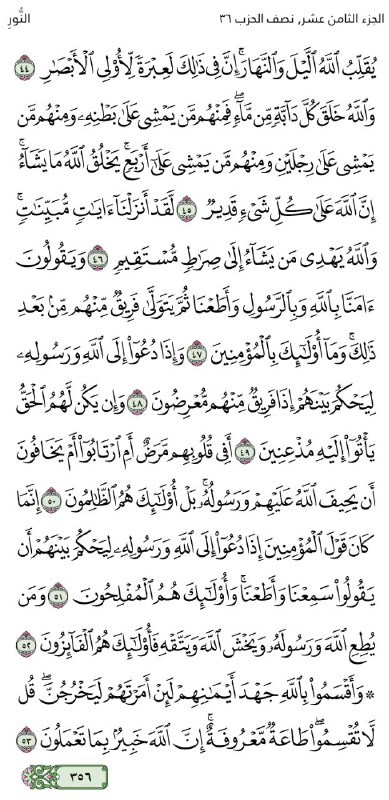 الجزء الثامن عشر, نصف الحزب ٣٦
النُّور
يُقَلِّبُ ٱللَّهُ ٱلَّيۡلَ وَٱلنَّهَارَۚ إِنَّ فِي ذَٰلِكَ لَعِبۡرَةٗ لِّأُوْلِي ٱلۡأَبۡصَٰرِ ٤٤
وَٱللَّهُ خَلَقَ كُلَّ دَآبَّةٖ مِّن مَّآءٖۖ فَمِنۡهُم مَّن يَمۡشِي عَلَىٰ بَطۡنِهِۦ وَمِنۡهُم مَّن
يَمۡشِي عَلَىٰ رِجۡلَيۡنِ وَمِنۡهُم مَّن يَمۡشِي عَلَىٰٓ أَرۡبَعٖۚ يَخۡلُقُ ٱللَّهُ مَا يَشَآءُۚ
إِنَّ ٱللَّهَ عَلَىٰ كُلِّ شَيۡءٖ قَدِيرٞ ٤٥ لَّقَدۡ أَنزَلۡنَآ ءَايَٰتٖ مُّبَيِّنَٰتٖۚ
وَٱللَّهُ يَهۡدِي مَن يَشَآءُ إِلَىٰ صِرَٰطٖ مُّسۡتَقِيمٖ ٤٦ وَيَقُولُونَ
ءَامَنَّا بِٱللَّهِ وَبِٱلرَّسُولِ وَأَطَعۡنَا ثُمَّ يَتَوَلَّىٰ فَرِيقٞ مِّنۡهُم مِّنۢ بَعۡدِ
ذَٰلِكَۚ وَمَآ أُوْلَٰٓئِكَ بِٱلۡمُؤۡمِنِينَ ٤٧ وَإِذَا دُعُوٓاْ إِلَى ٱللَّهِ وَرَسُولِهِۦ
لِيَحۡكُمَ بَيۡنَهُمۡ إِذَا فَرِيقٞ مِّنۡهُم مُّعۡرِضُونَ ٤٨ وَإِن يَكُن لَّهُمُ ٱلۡحَقُّ
يَأۡتُوٓاْ إِلَيۡهِ مُذۡعِنِينَ ٤٩ أَفِي قُلُوبِهِم مَّرَضٌ أَمِ ٱرۡتَابُوٓاْ أَمۡ يَخَافُونَ
أَن يَحِيفَ ٱللَّهُ عَلَيۡهِمۡ وَرَسُولُهُۥۚ بَلۡ أُوْلَٰٓئِكَ هُمُ ٱلظَّٰلِمُونَ ٥٠ إِنَّمَا
كَانَ قَوۡلَ ٱلۡمُؤۡمِنِينَ إِذَا دُعُوٓاْ إِلَى ٱللَّهِ وَرَسُولِهِۦ لِيَحۡكُمَ بَيۡنَهُمۡ أَن
يَقُولُواْ سَمِعۡنَا وَأَطَعۡنَاۚ وَأُوْلَٰٓئِكَ هُمُ ٱلۡمُفۡلِحُونَ ٥١ وَمَن
يُطِعِ ٱللَّهَ وَرَسُولَهُۥ وَيَخۡشَ ٱللَّهَ وَيَتَّقۡهِ فَأُوْلَٰٓئِكَ هُمُ ٱلۡفَآئِزُونَ ٥٢
* وَأَقۡسَمُواْ بِٱللَّهِ جَهۡدَ أَيۡمَٰنِهِمۡ لَئِنۡ أَمَرۡتَهُمۡ لَيَخۡرُجُنَّۖ قُل
لَّا تُقۡسِمُواْۖ طَاعَةٞ مَّعۡرُوفَةٌۚ إِنَّ ٱللَّهَ خَبِيرُۢ بِمَا تَعۡمَلُونَ ٥٣
٣٥٦